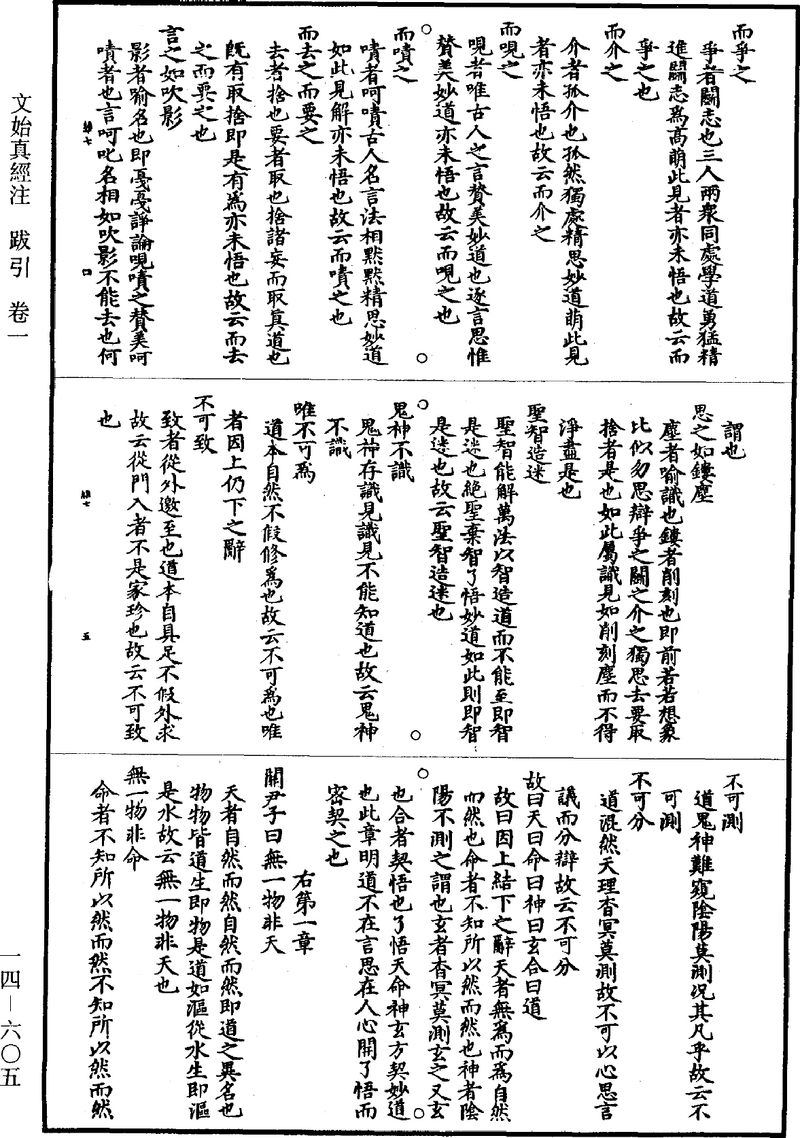 文始真經注　跋引　卷一
一四—六〇五
而爭之
爭者鬭志也三人兩衆同處學道勇猛精
進鬭志爲高萌此見者亦未悟也故云而
爭之也
而介之
介者孤介也孤然獨處精思妙道萌此見
者亦未悟也故云而介之
而哯之
哯者唯古人之言贊美妙道也逐言思惟
贊美妙道亦未悟也故云而哯之也
而嘖之
嘖者呵嘖古人名言法相默默精思妙道
如此見解亦未悟也故云而嘖之也
而去之而要之
去者捨也要者取也捨諸妄而取真道也
旣有取捨即是有爲亦未悟也故云而去
之而要之也
言之如吹影
影者喻名也即戞戞諍論哯嘖之贊美呵
嘖者也言呵叱名相如吹影不能去也何
謂也
思之如鏤塵
塵者喻識也鏤者削刻也即前若若想象
比似勿思辯爭之鬭之介之獨思去要取
捨者是也如此屬識見如削刻塵而不得
淨盡是也
聖智造迷
聖智能解萬法以智造道而不能至即智
是迷也絕聖棄智了悟妙道如此則即智
是迷也故云聖智造迷也
鬼神不識
鬼神存識見識見不能知道也故云鬼神
不識
唯不可爲
道本自然不假修爲也故云不可爲也唯
者因上仍下之辭
不可致
致者從外邀至也道本自具足不假外求
故云從門入者不是家珍也故云不可致
也
不可測
道鬼神難窺陰陽莫測況其凡乎故云不
可測
不可分
道混然天理杳冥莫測故不可以心思言
議而分辯故云不可分
故曰天曰命曰神曰玄合曰道
故曰因上結下之辭天者無爲而爲自然
而然也命者不知所以然而然也神者陰
陽不測之謂也玄者杳冥莫測玄之又玄
也合者契悟也了悟天命神玄方契妙道
也此章明道不在言思在人心開了悟而
密契之也
右第一章
關尹子曰無一物非天
天者自然而然自然而然即道之異名也
物物皆道生即物是道如漚從水生即漚
是水故云無一物非天也
無一物非命
命者不知所以然而然不知所以然而然